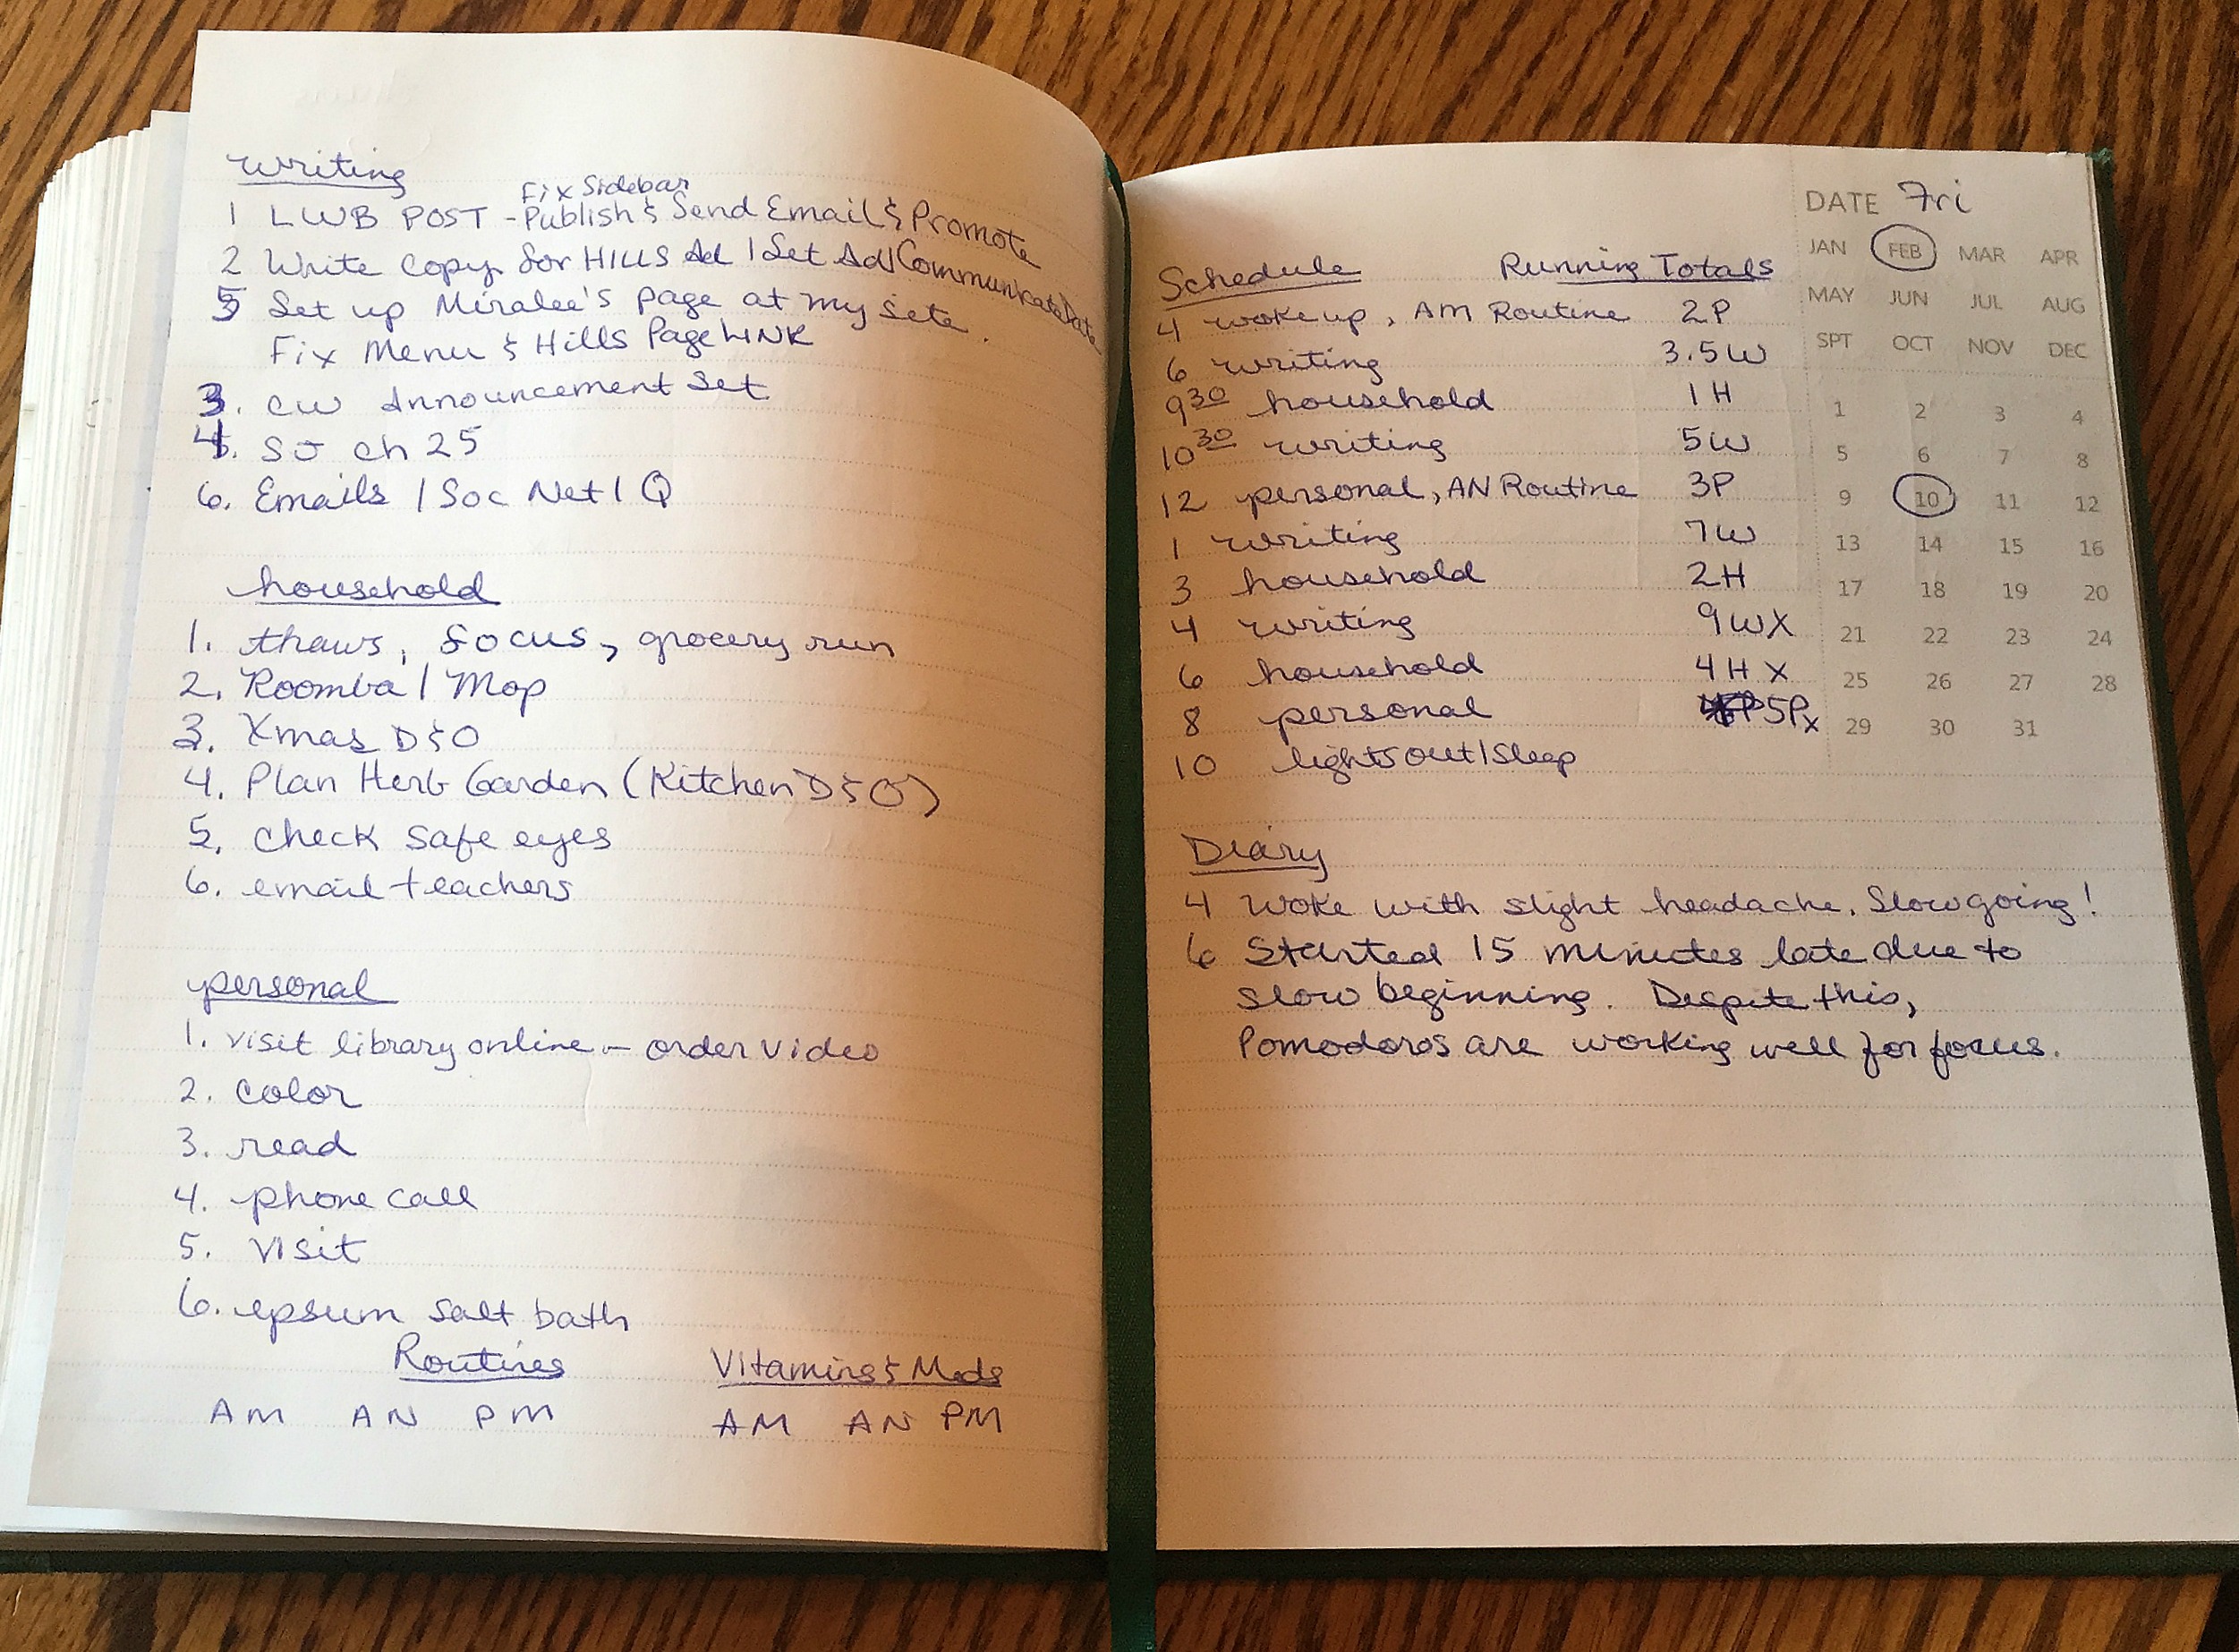 writing
Fix Sidebar
1 LWB POST - Publish & Send Email & Promote
2 Write Copy for HILLS Ad | Set Ad | Communicate Date
5 Set up Miralee's page at my site.
Fix Menu & Hills Page LINK
3. CW Announcement Set
4. SJ Ch 25
6. Emails | Soc Net | Q
household
1. thaws, focus, grocery run
2. Roomba | Mop
3. Xmas D&O
4. Plan Herb Garden (Kitchen D&O)
5. check safe eyes
6. email teachers
personal
1. visit library online - order video
2. color
3. read
4. phone call
5. visit
6. epsum salt bath
Routines Vitamins & Meds
AM AN PM AM AN PM
DATE Fri
JAN FEB MAR APR
MAY JUN JUL AUG
SPT OCT NOV DEC
1 2 3 4
5 6 7 8
9 10 11 12
13 14 15 16
17 18 19 20
21 22 23 24
25 26 27 28
29 30 31
Schedule Running Totals
4 woke up, AM Routine 2P
6 writing 3.5W
9 30 household 1H
10 30 writing 5W
12 personal, AN Routine 3P
1 writing 7W
3 household 2H
4 writing 9WX
6 household 4H X
8 personal 5P X
10 lights out | sleep
Diary
4 Woke with slight headache. Slow going!
6 Started 15 minutes late due to
slow beginning. Despite this,
Pomodoros are working well for focus.